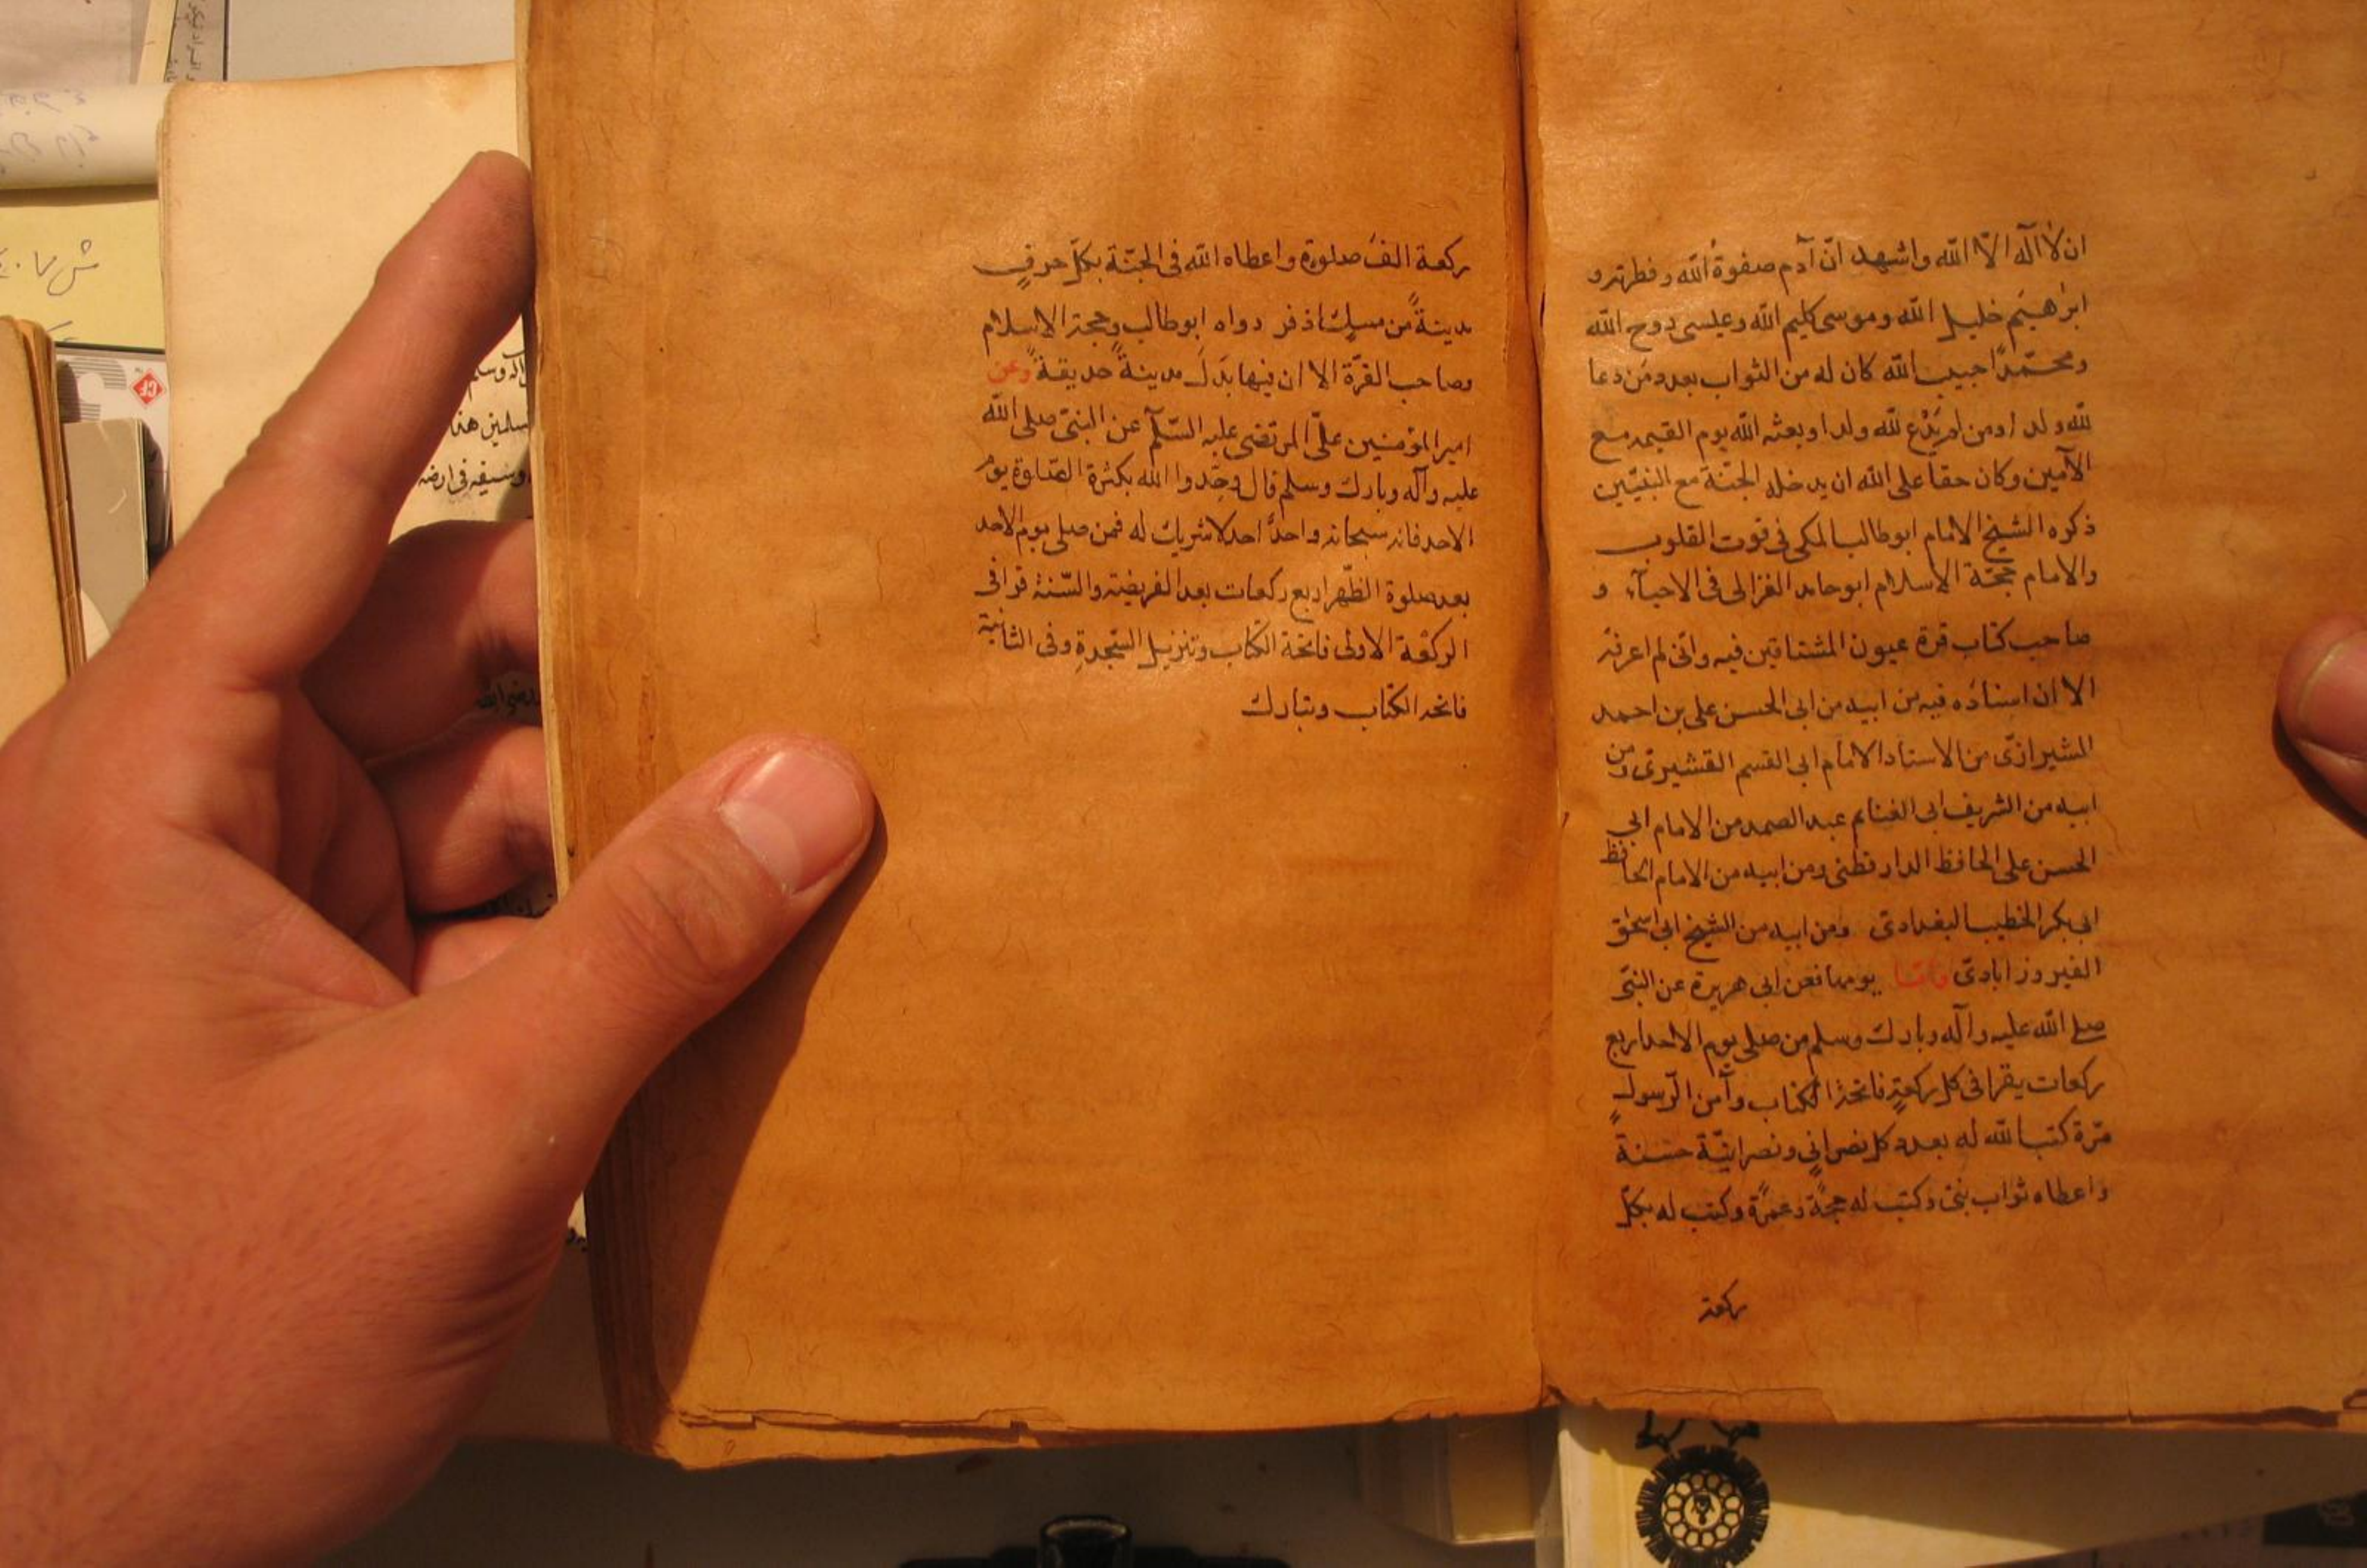 ان لا اله الا الله واشهد ان آدم صفوة الله وفطرته و
ابرهيم خليل الله وموسى كليم الله وعيسى روح الله
ومحمدا حبيب الله كان له من الثواب بعدد من دعا
لله ولدا ومن لم يدع لله ولدا وبعثه الله يوم القيمه مع
الآمنين وكان حقا على الله ان يدخله الجنة مع النبيين
ذكره الشيخ الامام ابوطالب المكى فى قوت القلوب
والامام حجة الاسلام ابوحامد الغزالى فى الاحياء و
صاحب كتاب قرة عيون المشتاقين فيه وانى لم اعرفه
الا ان اسناده فيه من ابيه من ابى الحسن على بن احمد
الشيرازى من الاستاد الامام ابى القسم القشيرى ومن
ابيه من الشريف ابى الغنايم عبد الصمد من الامام ابي
الحسن على الحافظ الدارقطنى ومن ابيه من الامام الحافظ
ابى بكر الخطيب البغدادى ومن ابيه من الشيخ ابى اسحق
الفيروزابادى واما يومها فعن ابى هريرة عن النبى
صلى الله عليه وآله وبارك وسلم من صلى يوم الاحد اربع
ركعات يقرا فى كل ركعة فاتحة الكتاب وآمن الرسول
مرة كتب الله له بعدد كل نصرانى ونصرانية حسنة
واعطاه ثواب نبى وكتب له حجة وعمرة وكتب له بكل
ركعة
ركعة الف صلوة واعطاه الله فى الجنة بكل حرف
مدينة من مسك اذفر رواه ابوطالب وحجة الاسلام
وصاحب القرة الا ان فيها بدل مدينة حديقة وعن
امير المؤمنين على المرتضى عليه السلم عن النبى صلى الله
عليه وآله وبارك وسلم قال وحدوا الله بكثرة الصلوة يوم
الاحد فانه سبحانه واحد احد لا شريك له فمن صلى يوم الاحد
بعد صلوة الظهر اربع ركعات بعد الفريضة والسنة قرا فى
الركعة الاولى فاتحة الكتاب وتنزيل السجدة وفى الثانية
فاتحة الكتاب وتبارك